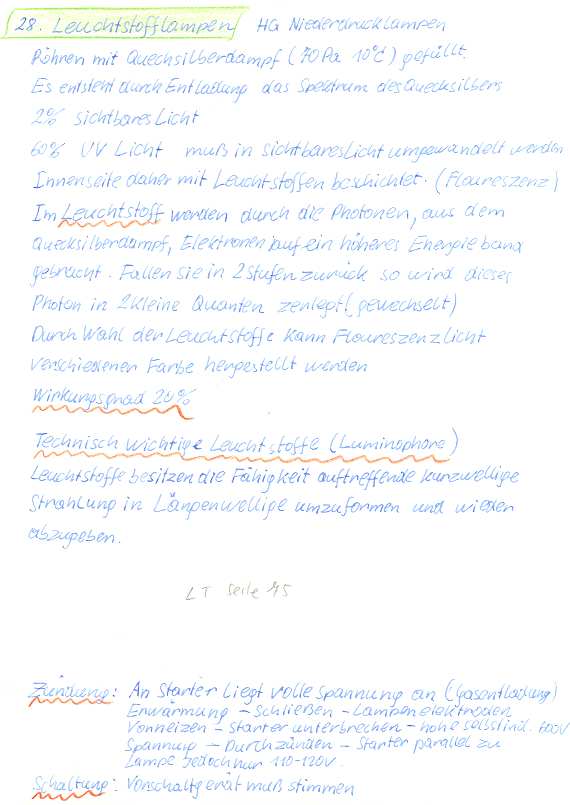 28. Leuchtstofflampen HG Niederdrucklampen
Röhren mit Quechsilberdampf (70Pa 10°C) gefüllt.
Es entsteht durch Entladung das Spektrum des Quecksilbers
2% sichtbares Licht
60% UV Licht muß in sichtbares Licht umgewandelt werden
Innenseite daher mit Leuchtstoffen beschichtet. (Floureszenz)
Im Leuchtstoff werden durch die Photonen, aus dem
Quecksilberdampf, Elektronen auf ein höheres Energieband
gebracht. Fallen sie in 2 Stufen zurück so wird dieses
Photon in 2 kleine Quanten zerlegt (gewechselt)
Durch Wahl der Leuchtstoffe kann Floureszenzlicht
verschiedener Farbe hergestellt werden
Wirkungsgrad 20%
Technisch wichtige Leuchtstoffe (Luminophore)
Leuchtstoffe besitzen die Fähigkeit auftreffende kurzwellige
Strahlung in Längenwellige umzuformen und wieder
abzugeben.
LT Seite 45
Zündung: An Starter liegt volle Spannung an (Gasentladung)
Erwärmung - Schließen - Lampenelektroden
Vorheizen - Starter unterbrechen - hohe selbstind. 600V
Spannung - Durchzünden - Starter parallel zu
Lampe jedoch nur 110-120V.
Schaltung: Vorschaltgerät muß stimmen